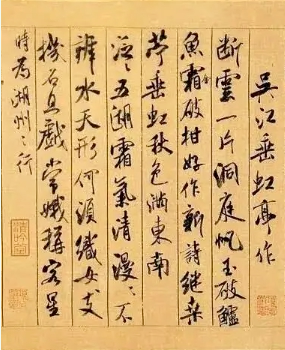 吴江垂虹亭作
断雲一片洞庭帆玉破鱸
魚霜破柑好作新詩继桒
苧垂虹秋色满東南
泛泛五湖霜氣清漫漫不
辨水天形何須織女支
機石且戲常娥稱客星
時為湖州之行